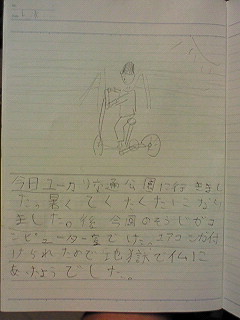 今日ユーカリ交通公園に行きまし
た。暑くてくたくたになり
ました。後 会週のそうじがコ
ンピューター室でした。エアコンが付
けられたので地獄で仏に
あったようでした。